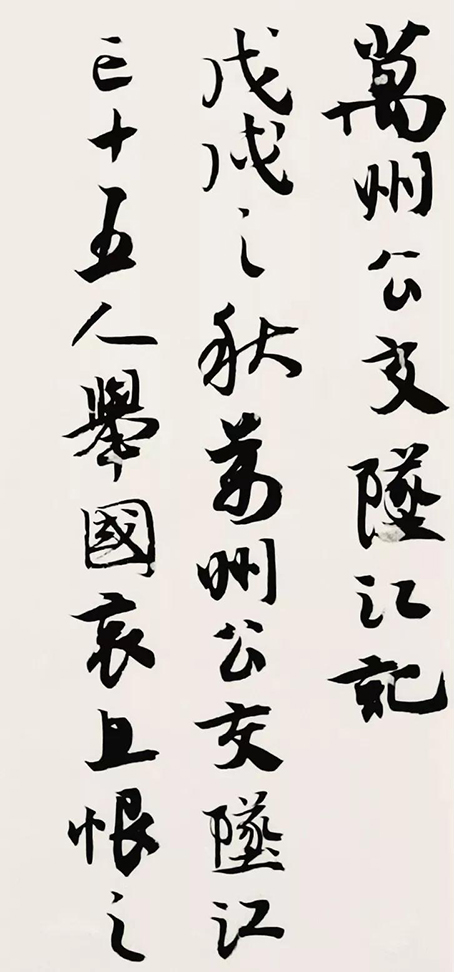 萬州公交墜江記
戊戌之秋萬州公交墜江
亡十五人舉國哀且恨之